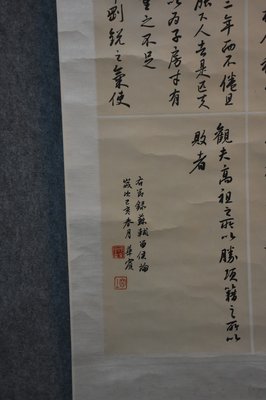 年而不倦且
能下人者是匹夫
以為子房才有
量之不足
剛銳之氣使
觀夫高祖之所以勝項籍之所以
敗者
右節錄蘇軾留侯論
歲次己亥春月 華